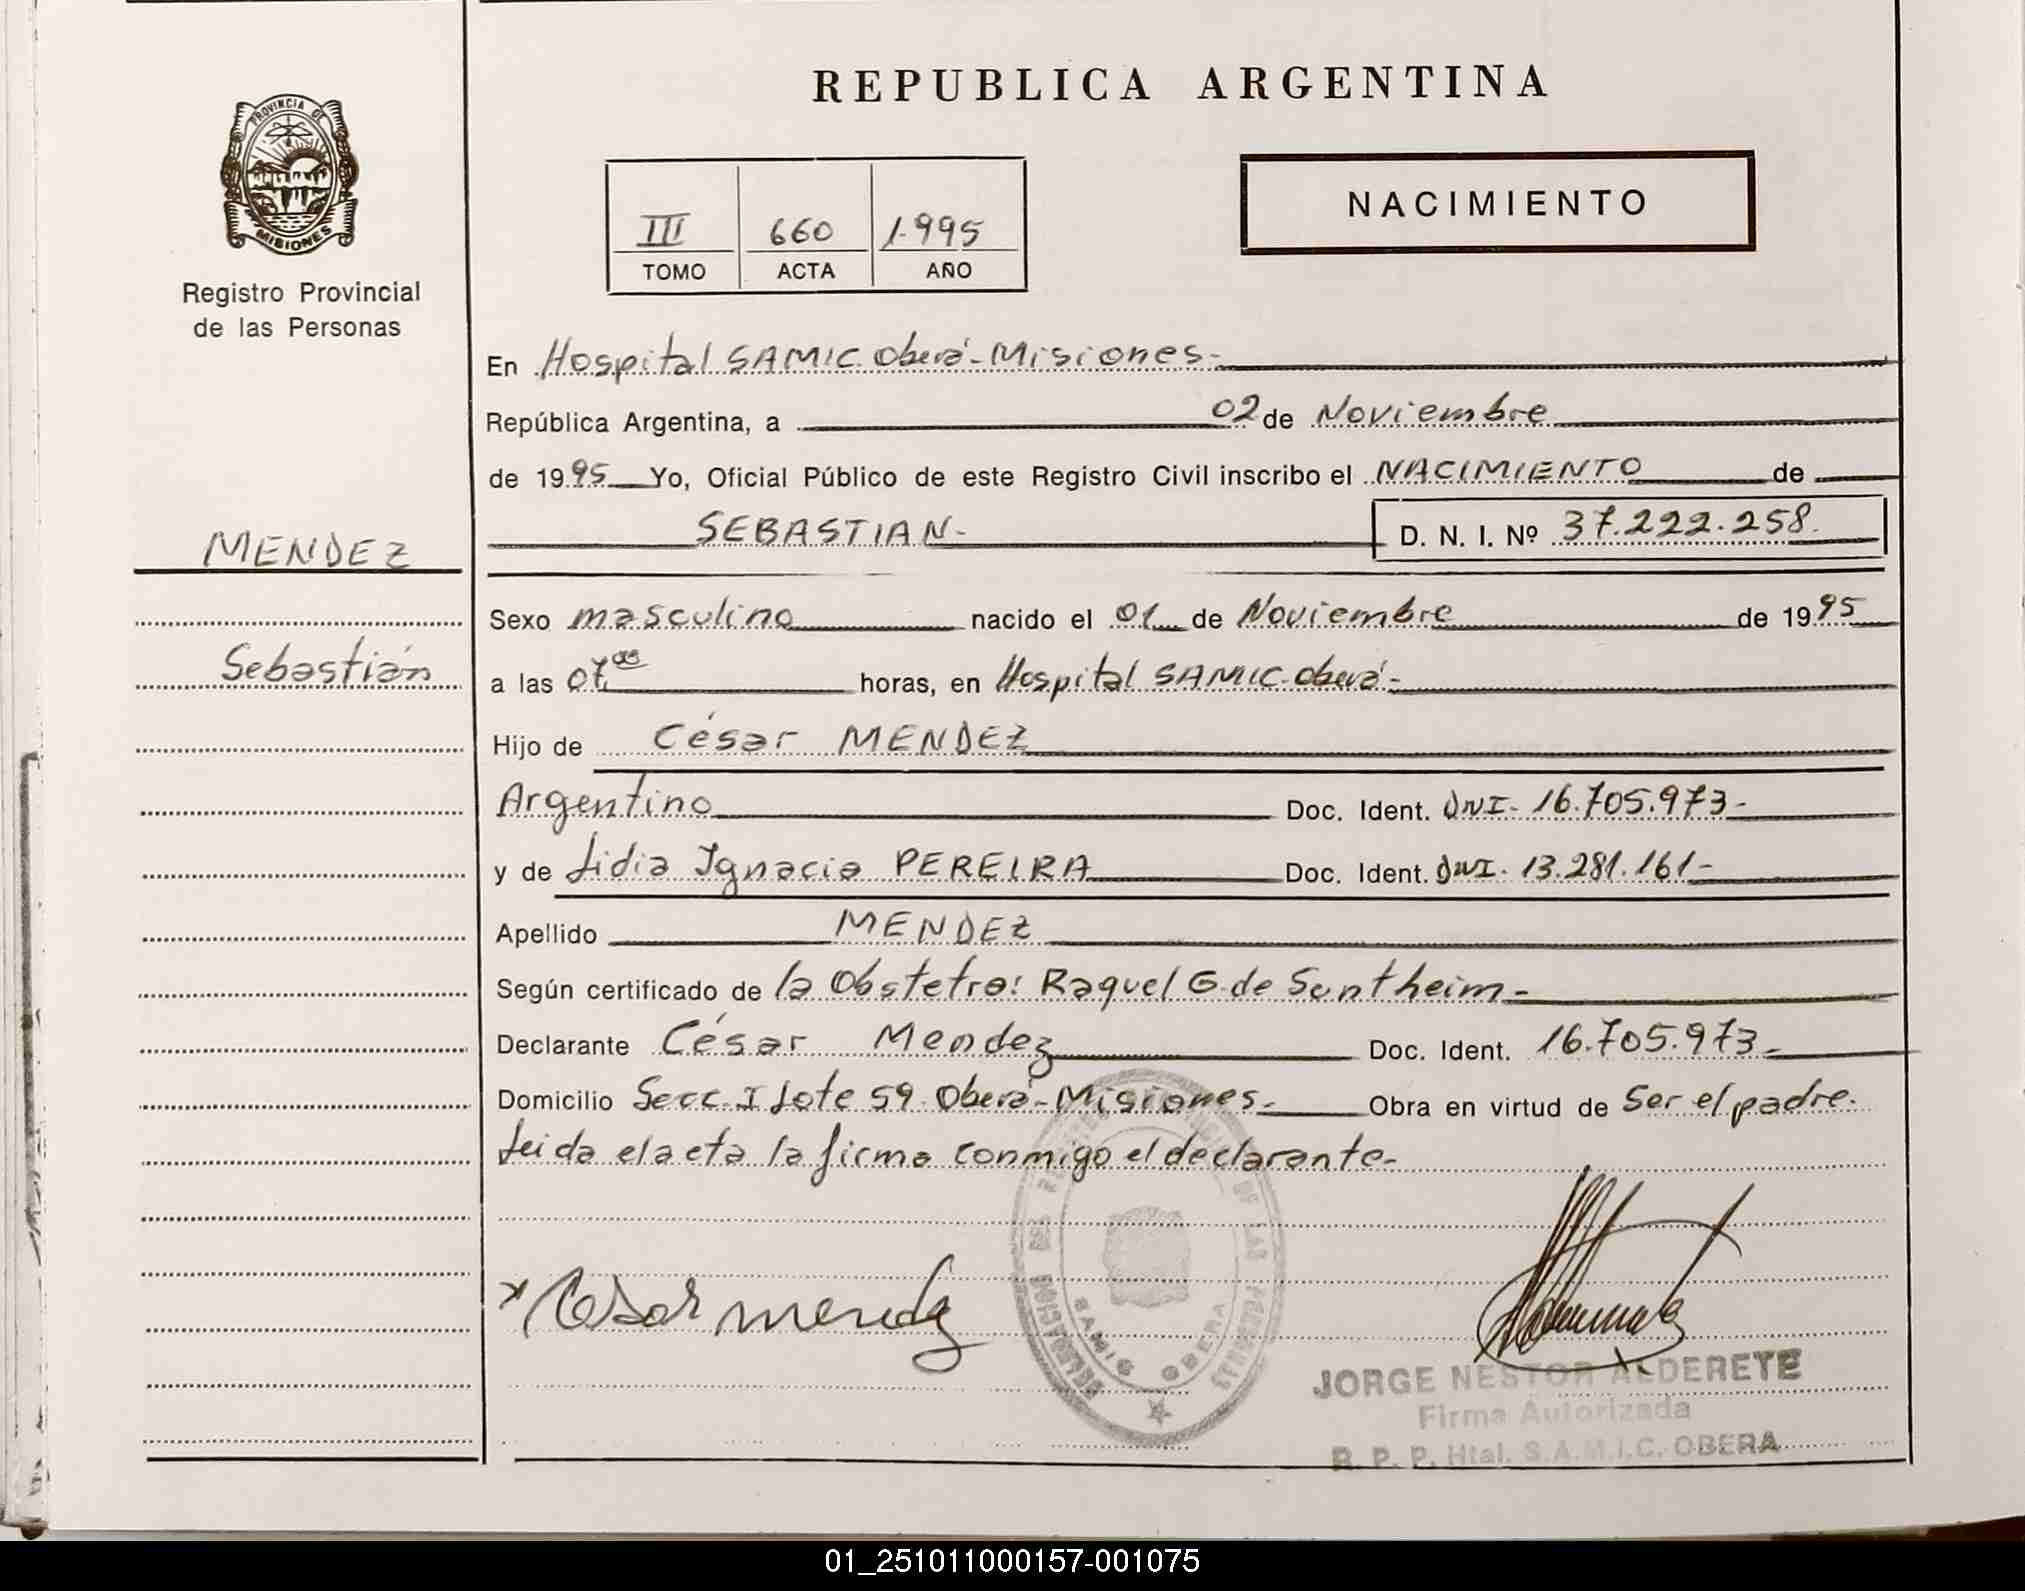 REPUBLICA ARGENTINA
PROVINCIA DE
MISIONES
Registro Provincial
de las Personas
NACIMIENTO
III 660 1.995
TOMO ACTA AÑO
En Hospital SAMIC. Oberá-Misiones.-
República Argentina, a 02 de Noviembre
de 1995 Yo, Oficial Público de este Registro Civil inscribo el NACIMIENTO de
SEBASTIAN.- D. N. I. Nº 37.222.258.
MENDEZ
Sexo masculino nacido el 01 de Noviembre de 1995
Sebastián
a las 07.00 horas, en Hospital SAMIC-Oberá.-
Hijo de César MENDEZ
Argentino Doc. Ident. DNI- 16.705.973-
y de Lidia Ignacia PEREIRA Doc. Ident. DNI. 13.281.161-
Apellido MENDEZ
Según certificado de la Obstetra: Raquel G. de Sontheim-
Declarante César Mendez Doc. Ident. 16.705.973-
Domicilio Secc. I Lote 59 Oberá-Misiones.- Obra en virtud de Ser el padre.
Leida el acta la firma conmigo el declarante-
Cesar mendez
DELEGACION DEL REGISTRO DE LAS PERSONAS
SAMIC OBERA
JORGE NESTOR ALDERETE
Firma Autorizada
R. P. P. Htal. S.A.M.I.C. OBERA
01_251011000157-001075